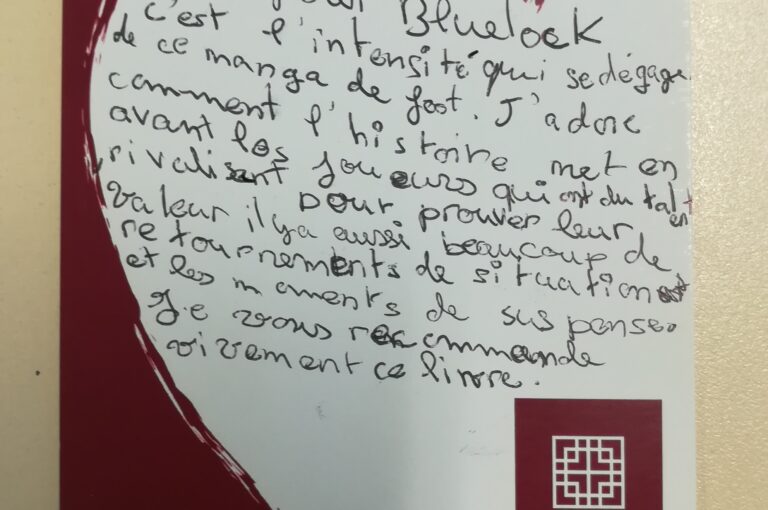 pour Bluelock
c'est l'intensité qui se dégage
de ce manga de foot. J'adore
comment l'histoire met en
avant les joueurs qui ont du talent
rivalisent pour prouver leur
valeur il y a aussi beaucoup de
retournements de situation
et les moments de suspense.
Je vous recommande
vivement ce livre.